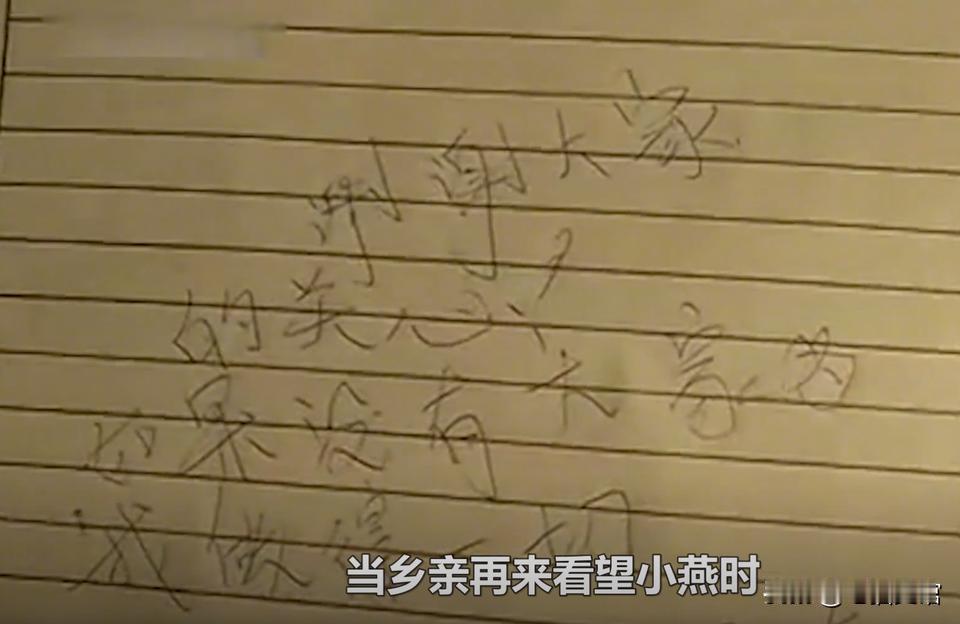 谢谢大家
的关心,
如果没有大家为
我做得一切
当乡亲再来看望小燕时